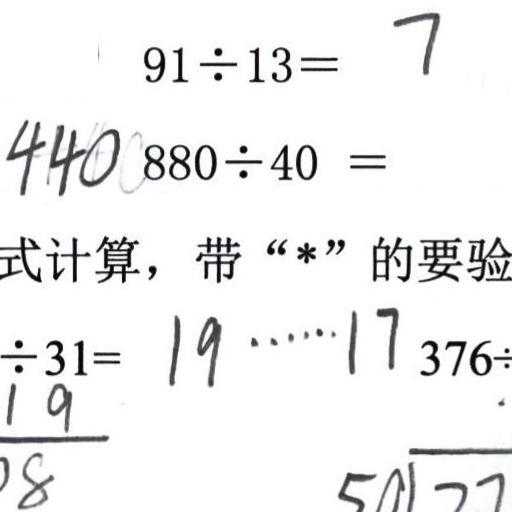 91÷13= 7
440 880÷40 =
式计算，带“*”的要验
÷31= 19……17 376÷
19
8 50 77